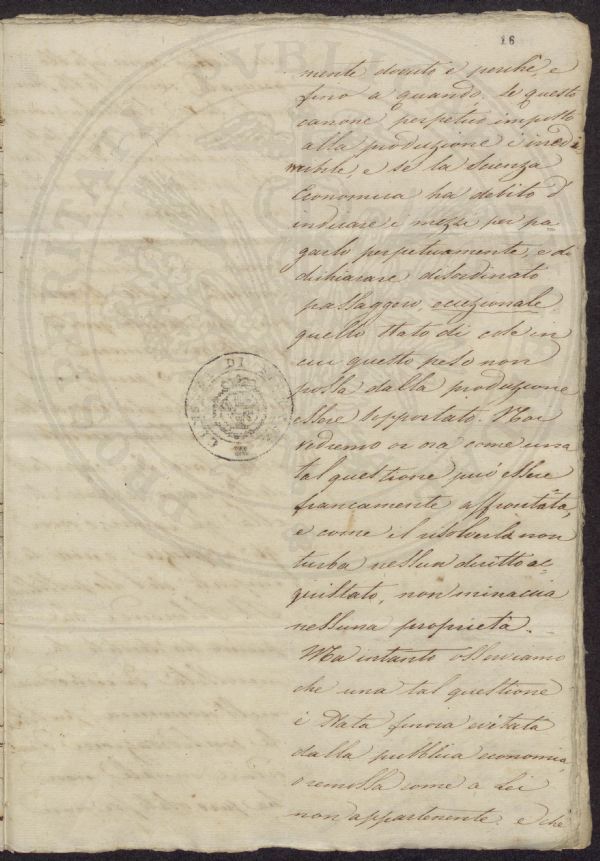 16
mente dovuto e perchè, e
fino a quando, se questo
canone perpetuo imposto
alla produzione è irredi
mibile, e se la Scienza
Economica ha debito d
indicare i mezzi per pa
garlo perpetuamente, e di
dichiarare disordinato
passaggero, eccezionale
quello stato di cose in
cui questo peso non
possa dalla produzione
essere sopportato. Noi
vedremo or ora come una
tal questione può essere
francamente affrontata,
e come il risolverla non
turba nessun diritto ac
quistato, non minaccia
nessuna proprietà.
Ma intanto osserviamo
che una tal questione
è stata finora evitata
dalla pubblica economia,
o remossa come a Lei
non appartenente e che
PVBLI
PROSPERITATI
DI